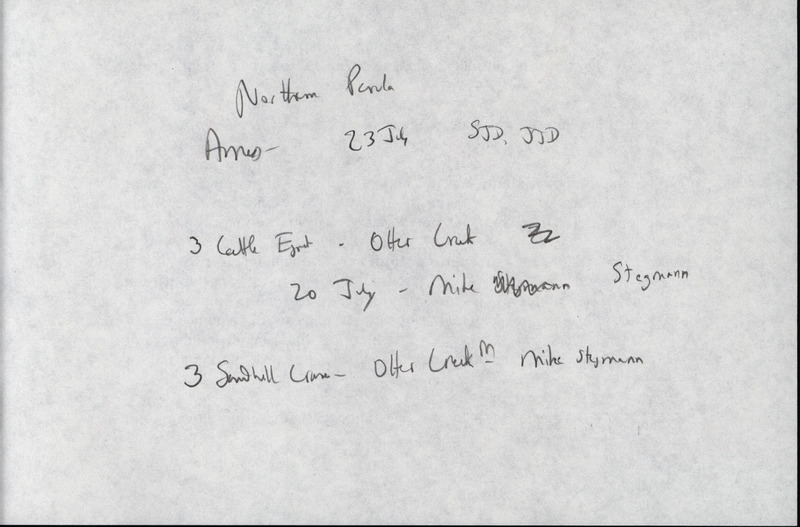 Northern Parula
Ames - 23 July SJD, JJD
3 Cattle Egret - Otter Creek
20 July - Mike Stegmann
3 Sandhill Crane - Otter Creek M Mike Stegmann